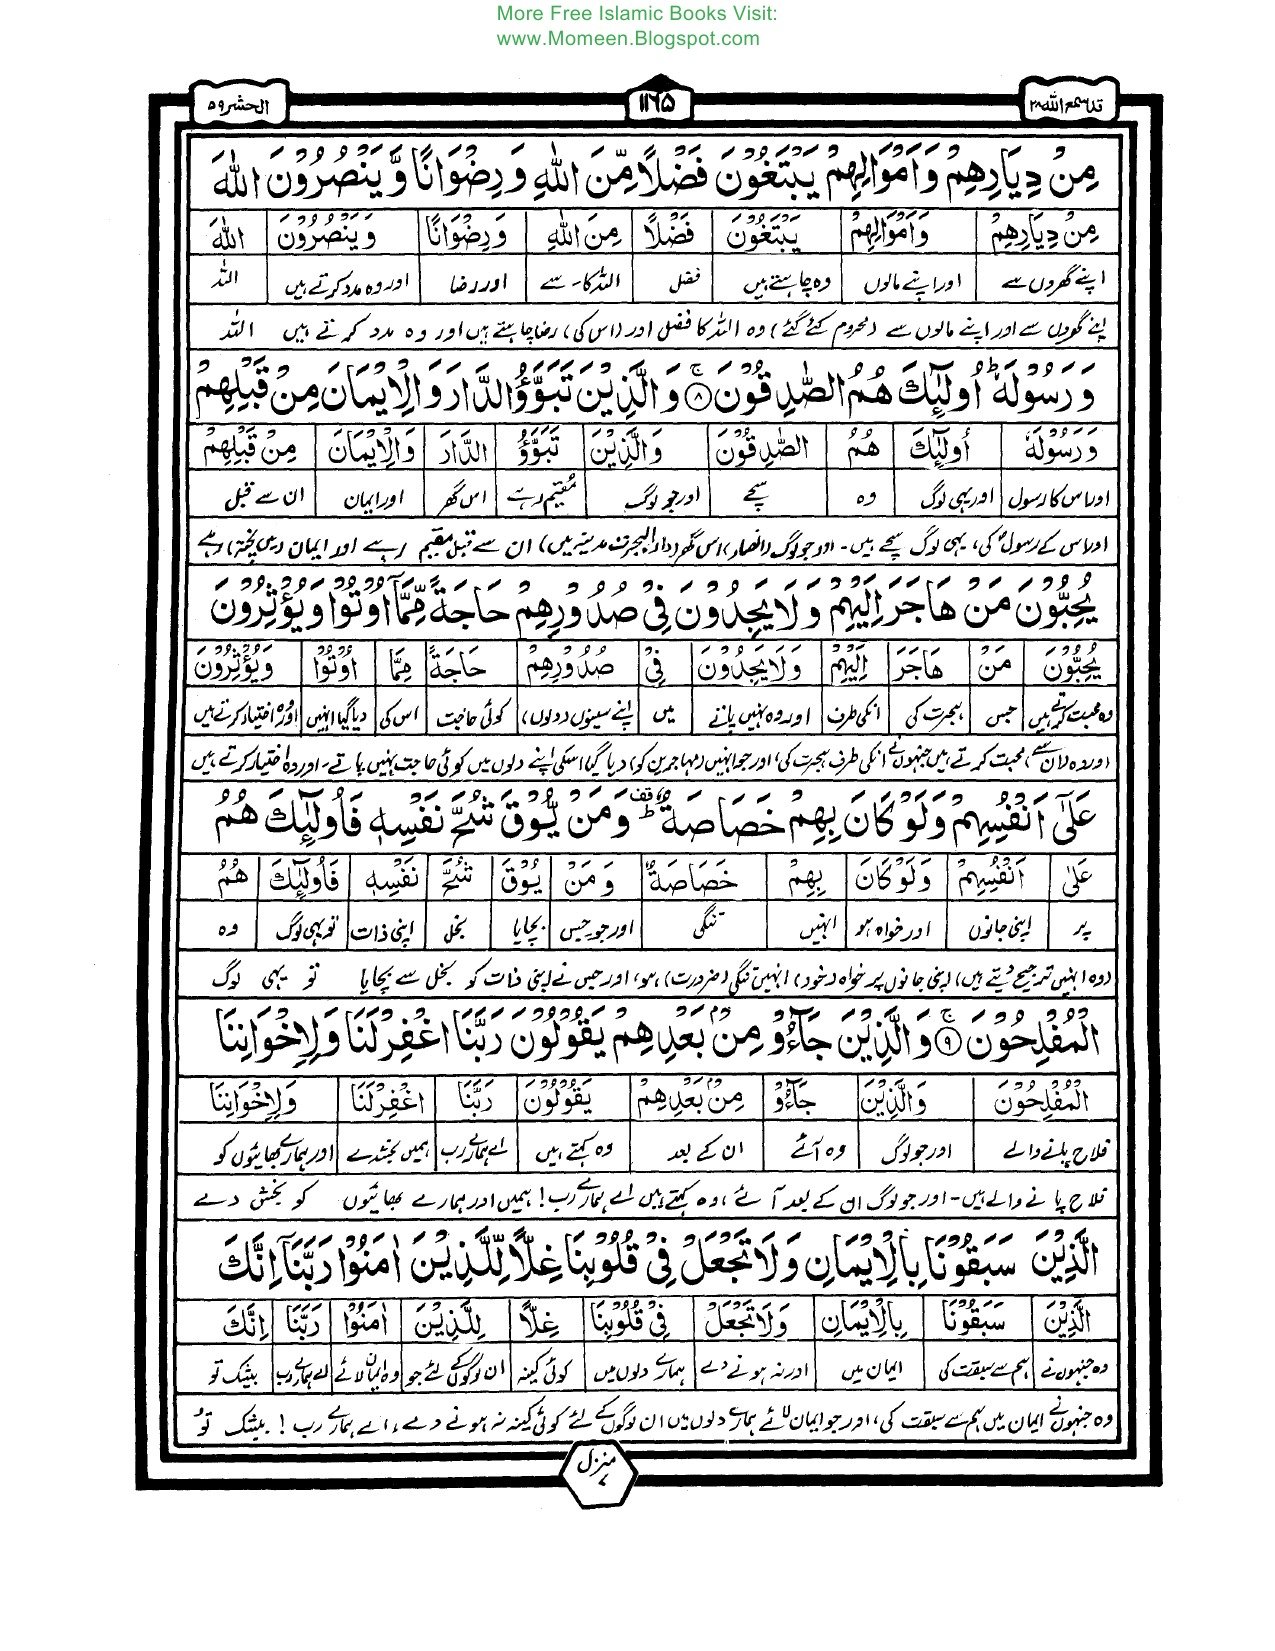 More Free Islamic Books Visit:
www.Momeen.Blogspot.com
قد سمع الله ۲۸ ۱۱۶۵ الحشر ۵۹
مِنْ دِيَارِهِمْ وَاَمْوَالِهِمْ يَبْتَغُوْنَ فَضْلًا مِّنَ اللّٰهِ وَرِضْوَانًا وَّيَنْصُرُوْنَ اللّٰهَ
مِنْ دِيَارِهِمْ وَاَمْوَالِهِمْ يَبْتَغُوْنَ فَضْلًا مِنَ اللّٰهِ وَرِضْوَانًا وَيَنْصُرُوْنَ اللّٰهَ
اپنے گھروں سے اور اپنے مالوں وہ چاہتے ہیں فضل اللہ کا۔ سے اور رضا اور وہ مدد کرتے ہیں اللہ
اپنے گھروں سے اور اپنے مالوں سے (محروم کئے گئے) وہ اللہ کا فضل اور (اس کی) رضا چاہتے ہیں اور وہ مدد کرتے ہیں اللہ
وَرَسُوْلَهٗ ؕ اُولٰٓئِكَ هُمُ الصّٰدِقُوْنَ ۚ ۸ وَالَّذِيْنَ تَبَوَّؤُ الدَّارَ وَالْاِيْمَانَ مِنْ قَبْلِهِمْ
وَرَسُوْلَهٗ اُولٰٓئِكَ هُمُ الصّٰدِقُوْنَ وَالَّذِيْنَ تَبَوَّؤُ الدَّارَ وَالْاِيْمَانَ مِنْ قَبْلِهِمْ
اور اس کا رسول اور یہی لوگ وہ سچے اور جو لوگ مقیم رہے اس گھر اور ایمان ان سے قبل
اور اس کے رسول کی، یہی لوگ سچے ہیں۔ اور جو لوگ (انصار) اس گھر (دار الہجرت مدینہ میں) ان سے قبل مقیم رہے اور ایمان (میں پختہ) رہے
يُحِبُّوْنَ مَنْ هَاجَرَ اِلَيْهِمْ وَلَا يَجِدُوْنَ فِيْ صُدُوْرِهِمْ حَاجَةً مِّمَّآ اُوْتُوْا وَيُؤْثِرُوْنَ
يُحِبُّوْنَ مَنْ هَاجَرَ اِلَيْهِمْ وَلَا يَجِدُوْنَ فِيْ صُدُوْرِهِمْ حَاجَةً مِّمَّا اُوْتُوْا وَيُؤْثِرُوْنَ
وہ محبت کرتے ہیں جس ہجرت کی انکی طرف اور وہ نہیں پاتے میں اپنے سینوں (دلوں) کوئی حاجت اس کی دیا گیا انہیں اور وہ اختیار کرتے ہیں
اور وہ (ان سے) محبت کرتے ہیں جنہوں نے انکی طرف ہجرت کی، اور جو انہیں (مہاجرین کو) دیا گیا اسکی اپنے دلوں میں کوئی حاجت نہیں پاتے۔ اور وہ اختیار کرتے ہیں
عَلٰٓى اَنْفُسِهِمْ وَلَوْ كَانَ بِهِمْ خَصَاصَةٌ ؕ وَمَنْ يُّوْقَ شُحَّ نَفْسِهٖ فَاُولٰٓئِكَ هُمُ
عَلٰى اَنْفُسِهِمْ وَلَوْ كَانَ بِهِمْ خَصَاصَةٌ وَمَنْ يُوْقَ شُحَّ نَفْسِهٖ فَاُولٰٓئِكَ هُمُ
پر اپنی جانوں اور خواہ ہو انہیں تنگی اور جو جس بچایا بخل اپنی ذات تو یہی لوگ وہ
(وہ انہیں ترجیح دیتے ہیں) اپنی جانوں پر خواہ (خود) انہیں تنگی (ضرورت) ہو، اور جس نے اپنی ذات کو بخل سے بچایا تو یہی لوگ
الْمُفْلِحُوْنَ ۚ ۹ وَالَّذِيْنَ جَآءُوْ مِنْۢ بَعْدِهِمْ يَقُوْلُوْنَ رَبَّنَا اغْفِرْ لَنَا وَلِاِخْوَانِنَا
الْمُفْلِحُوْنَ وَالَّذِيْنَ جَآءُوْ مِنْۢ بَعْدِهِمْ يَقُوْلُوْنَ رَبَّنَا اغْفِرْ لَنَا وَلِاِخْوَانِنَا
فلاح پانے والے اور جو لوگ وہ آئے ان کے بعد وہ کہتے ہیں اے ہمارے رب ہمیں بخشدے اور ہمارے بھائیوں کو
فلاح پانے والے ہیں۔ اور جو لوگ ان کے بعد آئے، وہ کہتے ہیں اے ہمارے رب! ہمیں اور ہمارے بھائیوں کو بخش دے
الَّذِيْنَ سَبَقُوْنَا بِالْاِيْمَانِ وَلَا تَجْعَلْ فِيْ قُلُوْبِنَا غِلًّا لِّلَّذِيْنَ اٰمَنُوْا رَبَّنَآ اِنَّكَ
الَّذِيْنَ سَبَقُوْنَا بِالْاِيْمَانِ وَلَا تَجْعَلْ فِيْ قُلُوْبِنَا غِلًّا لِلَّذِيْنَ اٰمَنُوْا رَبَّنَا اِنَّكَ
وہ جنہوں نے ہم سے سبقت کی ایمان میں اور نہ ہونے دے ہمارے دلوں میں کوئی کینہ ان لوگوں کے لئے جو وہ ایمان لائے اے ہمارے رب بیشک تو
وہ جنہوں نے ایمان میں ہم سے سبقت کی، اور جو ایمان لائے ہمارے دلوں میں ان لوگوں کے لئے کوئی کینہ نہ ہونے دے، اے ہمارے رب! بیشک تو
منزل ۷